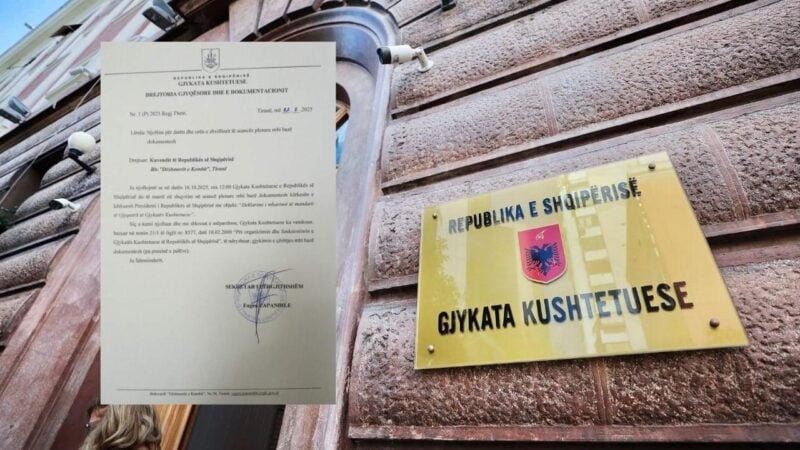 REPUBLIKA E SHQIPËRISË
GJYKATA KUSHTETUESE
DREJTORIA GJYQËSORE DHE E DOKUMENTACIONIT
Nr. 1 (P) 2025 Regj.Them.
Tiranë, më 2025
Lënda: Njoftim për datën dhe orën e zhvillimit të seancës plenare mbi bazë
dokumentesh
Drejtuar: Kuvendit të Republikës së Shqipërisë
Blv. "Dëshmorët e Kombit", Tiranë
Ju njoftojmë se në datën 16.10.2025, ora 12:00 Gjykata Kushtetuese e Republikës së
Shqipërisë do të marrë në shqyrtim në seancë plenare mbi bazë dokumentesh kërkesën e
Presidenti i Republikës së Shqipërisë me objekt: "Deklarimi i mbarimit të mandatit
të Gjyqtarit të Gjykatës Kushtetuese".
Siç u keni njoftuar dhe me shkresat e mëparshme, Gjykata Kushtetuese ka vendosur,
bazuar në nenin 21/1 të ligjit nr. 8577, datë 10.02.2000 "Për organizimin dhe funksionimin e
Gjykatës Kushtetuese të Republikës së Shqipërisë", të ndryshuar, gjykimin e çështjes mbi bazë
dokumentesh (pa praninë e palëve).
Ju faleminderit,
SEKRETAR I PËRGJITHSHËM
ZAPANDILE
REPUBLIKA E SHQIPËRISË
GJYKATA KUSHTETUESE